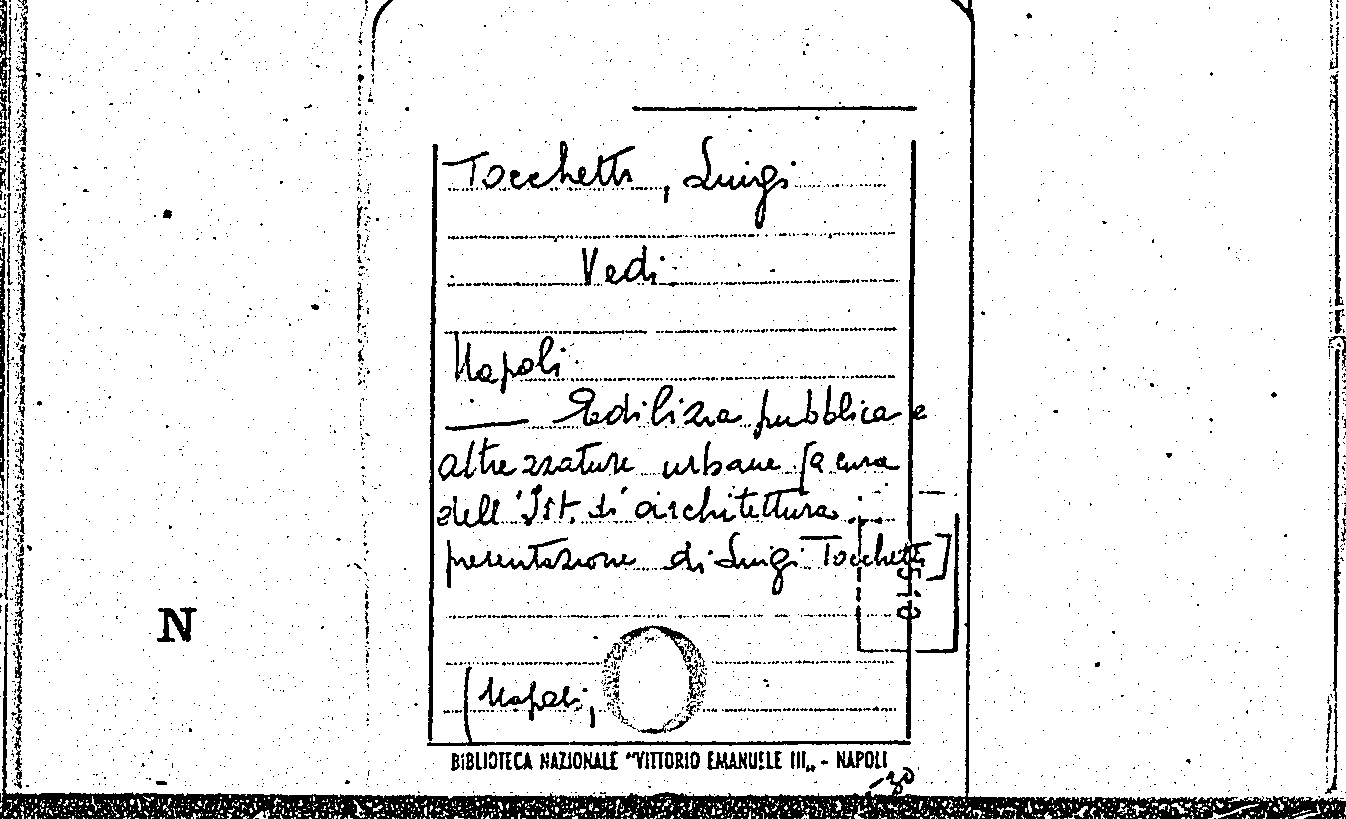 Tocchetti, Luigi
Vedi
Napoli
— Edilizia pubblica e
attrezzature urbane [a cura
dell'Ist. di architettura...
presentazione di Luigi Tocchetti]
N
(Napoli,
BIBLIOTECA NAZIONALE "VITTORIO EMANUELE III„ - NAPOLI